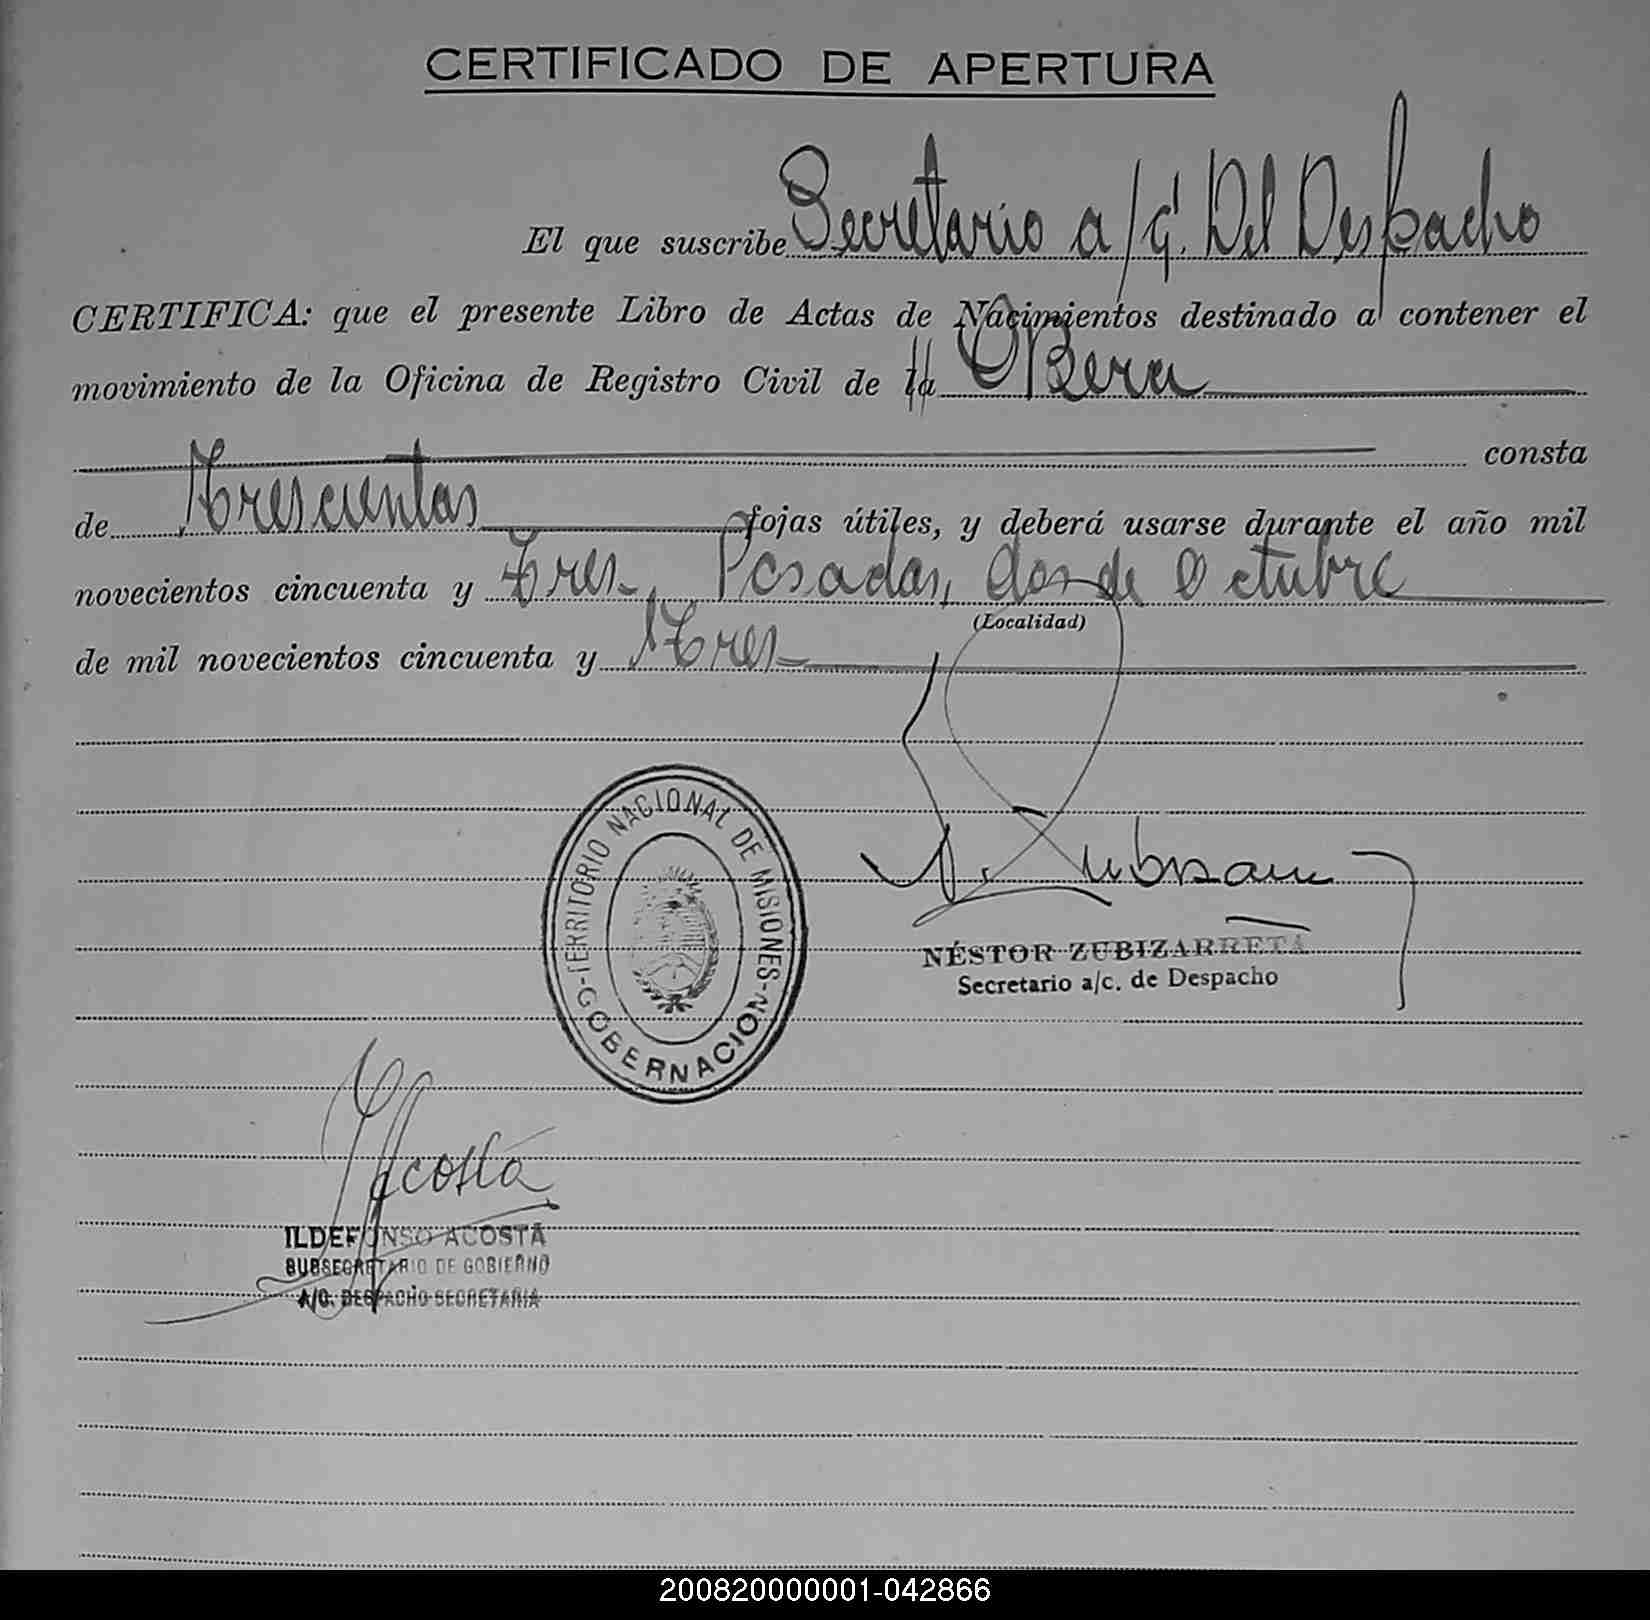 CERTIFICADO DE APERTURA
El que suscribe Secretario a/c. Del Despacho
CERTIFICA: que el presente Libro de Actas de Nacimientos destinado a contener el
movimiento de la Oficina de Registro Civil de Obera
consta
de Trescientas fojas útiles, y deberá usarse durante el año mil
novecientos cincuenta y Tres. Posadas, dos de Octubre
(Localidad)
de mil novecientos cincuenta y Tres
TERRITORIO NACIONAL DE MISIONES
GOBERNACION
N. Zubizarreta
NÉSTOR ZUBIZARRETA
Secretario a/c. de Despacho
I Acosta
ILDEFONSO ACOSTA
SUBSECRETARIO DE GOBIERNO
A/C. DESPACHO SECRETARIA
200820000001-042866